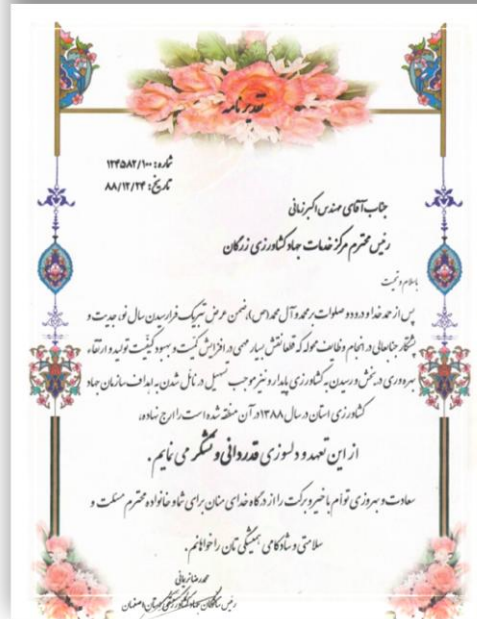 تقدیر نامه
شماره: ۱۲۴۵۸۲/۱۰۰
تاریخ: ۸۸/۱۲/۲۴
جناب آقای مهندس اکبر زمانی
رئیس محترم مرکز خدمات جهاد کشاورزی زرگان
باسلام و تحیت
پس از حمد خدا و درود و صلوات بر محمد و آل محمد (ص)، ضمن عرض تبریک فرارسیدن سال نو، جدیت و
پشتکار جنابعالی در انجام وظایف محوله که قطعا نقش بسیار مهمی در افزایش کمیت و بهبود کیفیت تولید و ارتقاء
بهره وری در بخش و رسیدن به کشاورزی پایدار و نیز موجب تسهیل در نائل شدن به اهداف سازمان جهاد
کشاورزی استان در سال ۱۳۸۸ در آن منطقه شده است را ارج نهاده و،
از این تعهد و دلسوزی قدردانی و تشکر می نمایم.
سعادت و بهروزی توأم با خیر و برکت را از درگاه خدای منان برای شما و خانواده محترم مسئلت و
سلامتی و شادکامی همیشگی تان را خواهانم.
محمدرضا
رئیس سازمان جهاد کشاورزی